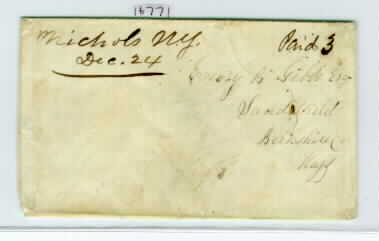 16771
Nichols NY.
Dec. 24
Paid 3
Emory B Gibbs Esq
Sandisfield
Berkshire Co
Mass